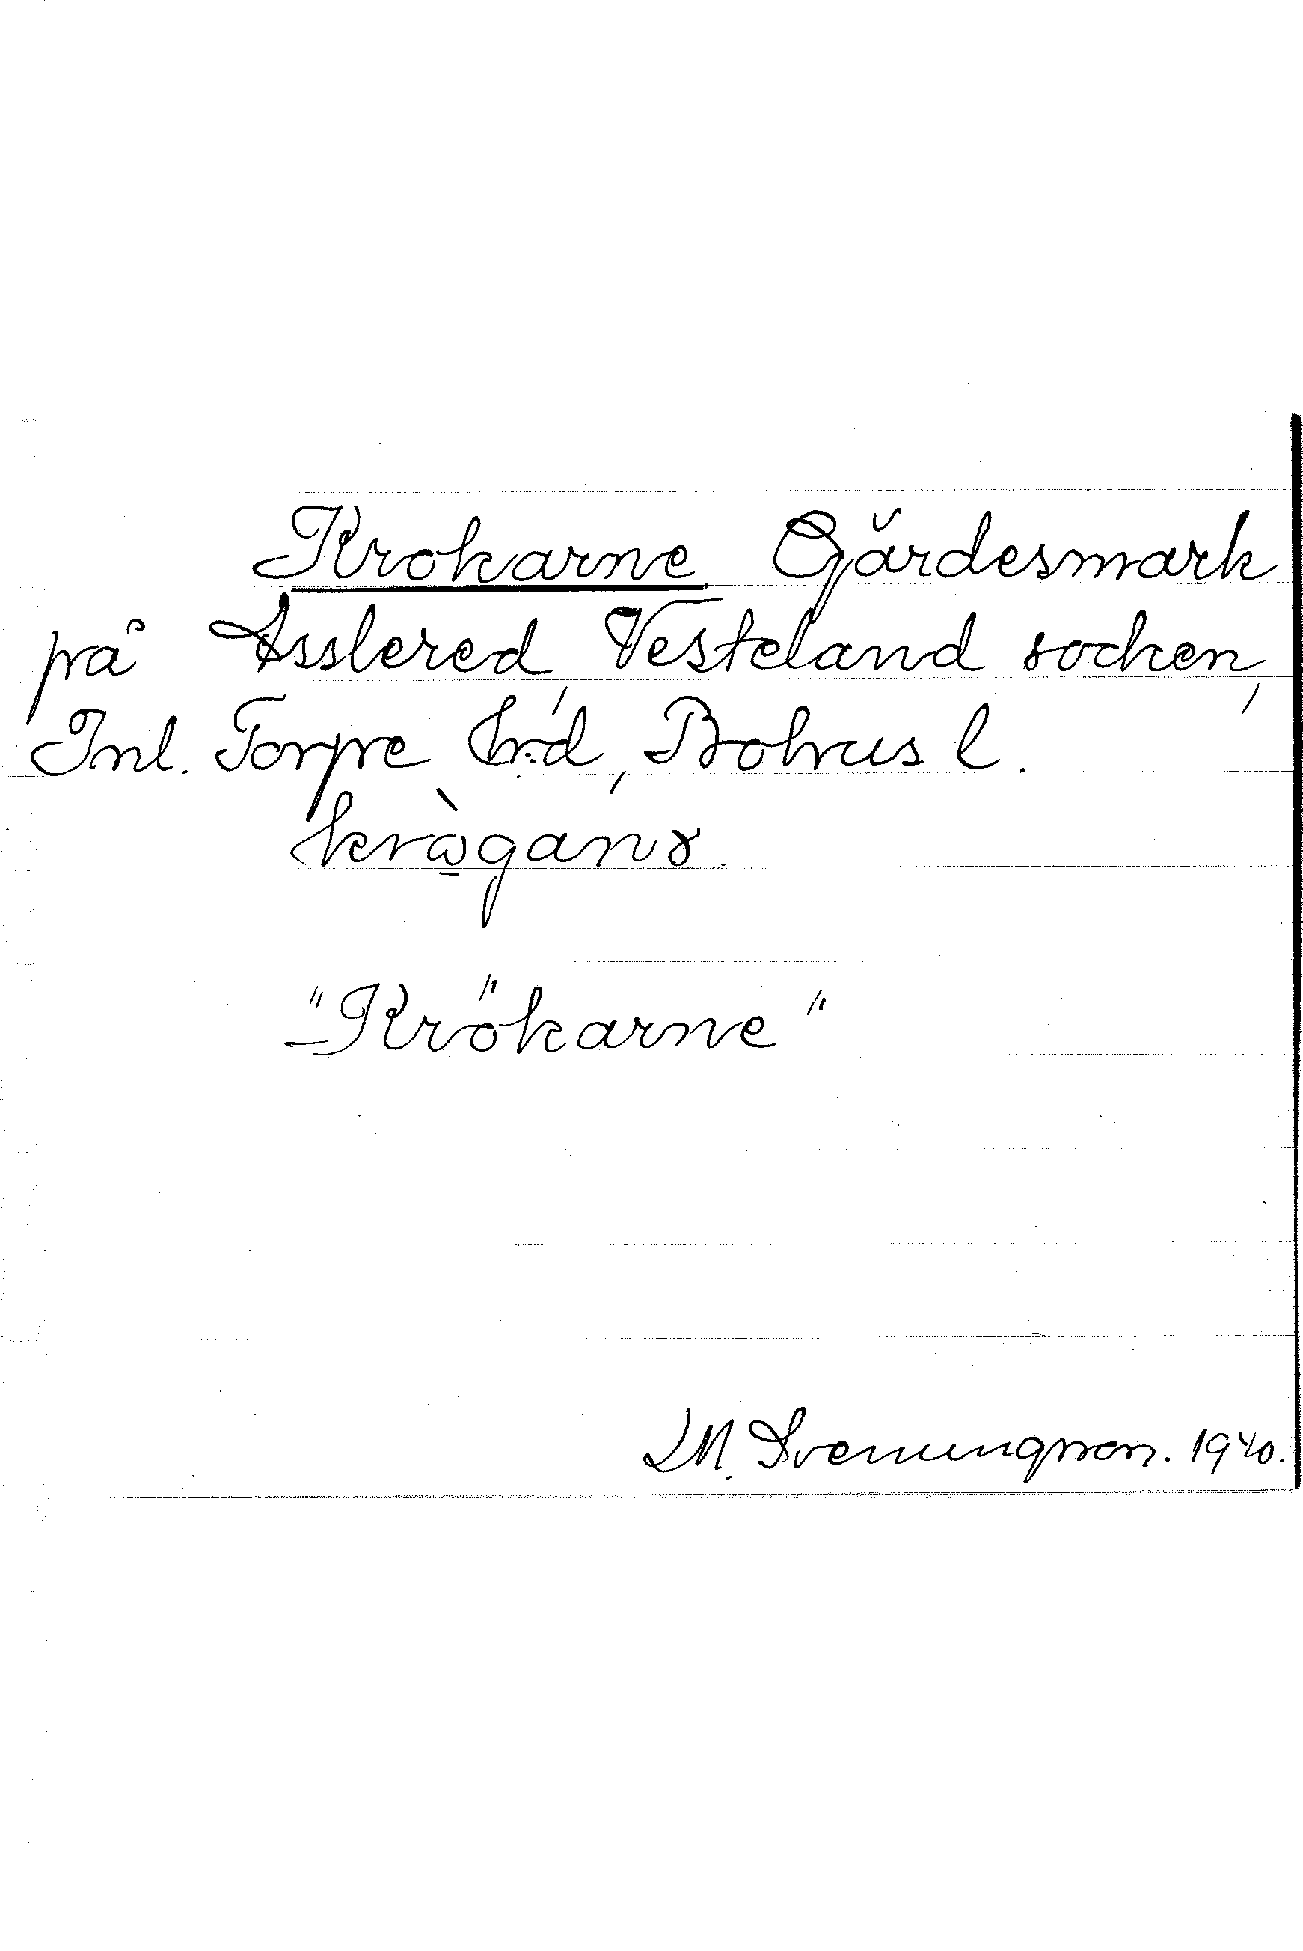 Krokarne Gärdesmark
på Asslered, Vesteland socken,
Inl. Torpe hrd, Bohus l.
kròganɤ
"Krökarne"
LM. Svenungsson. 1940.